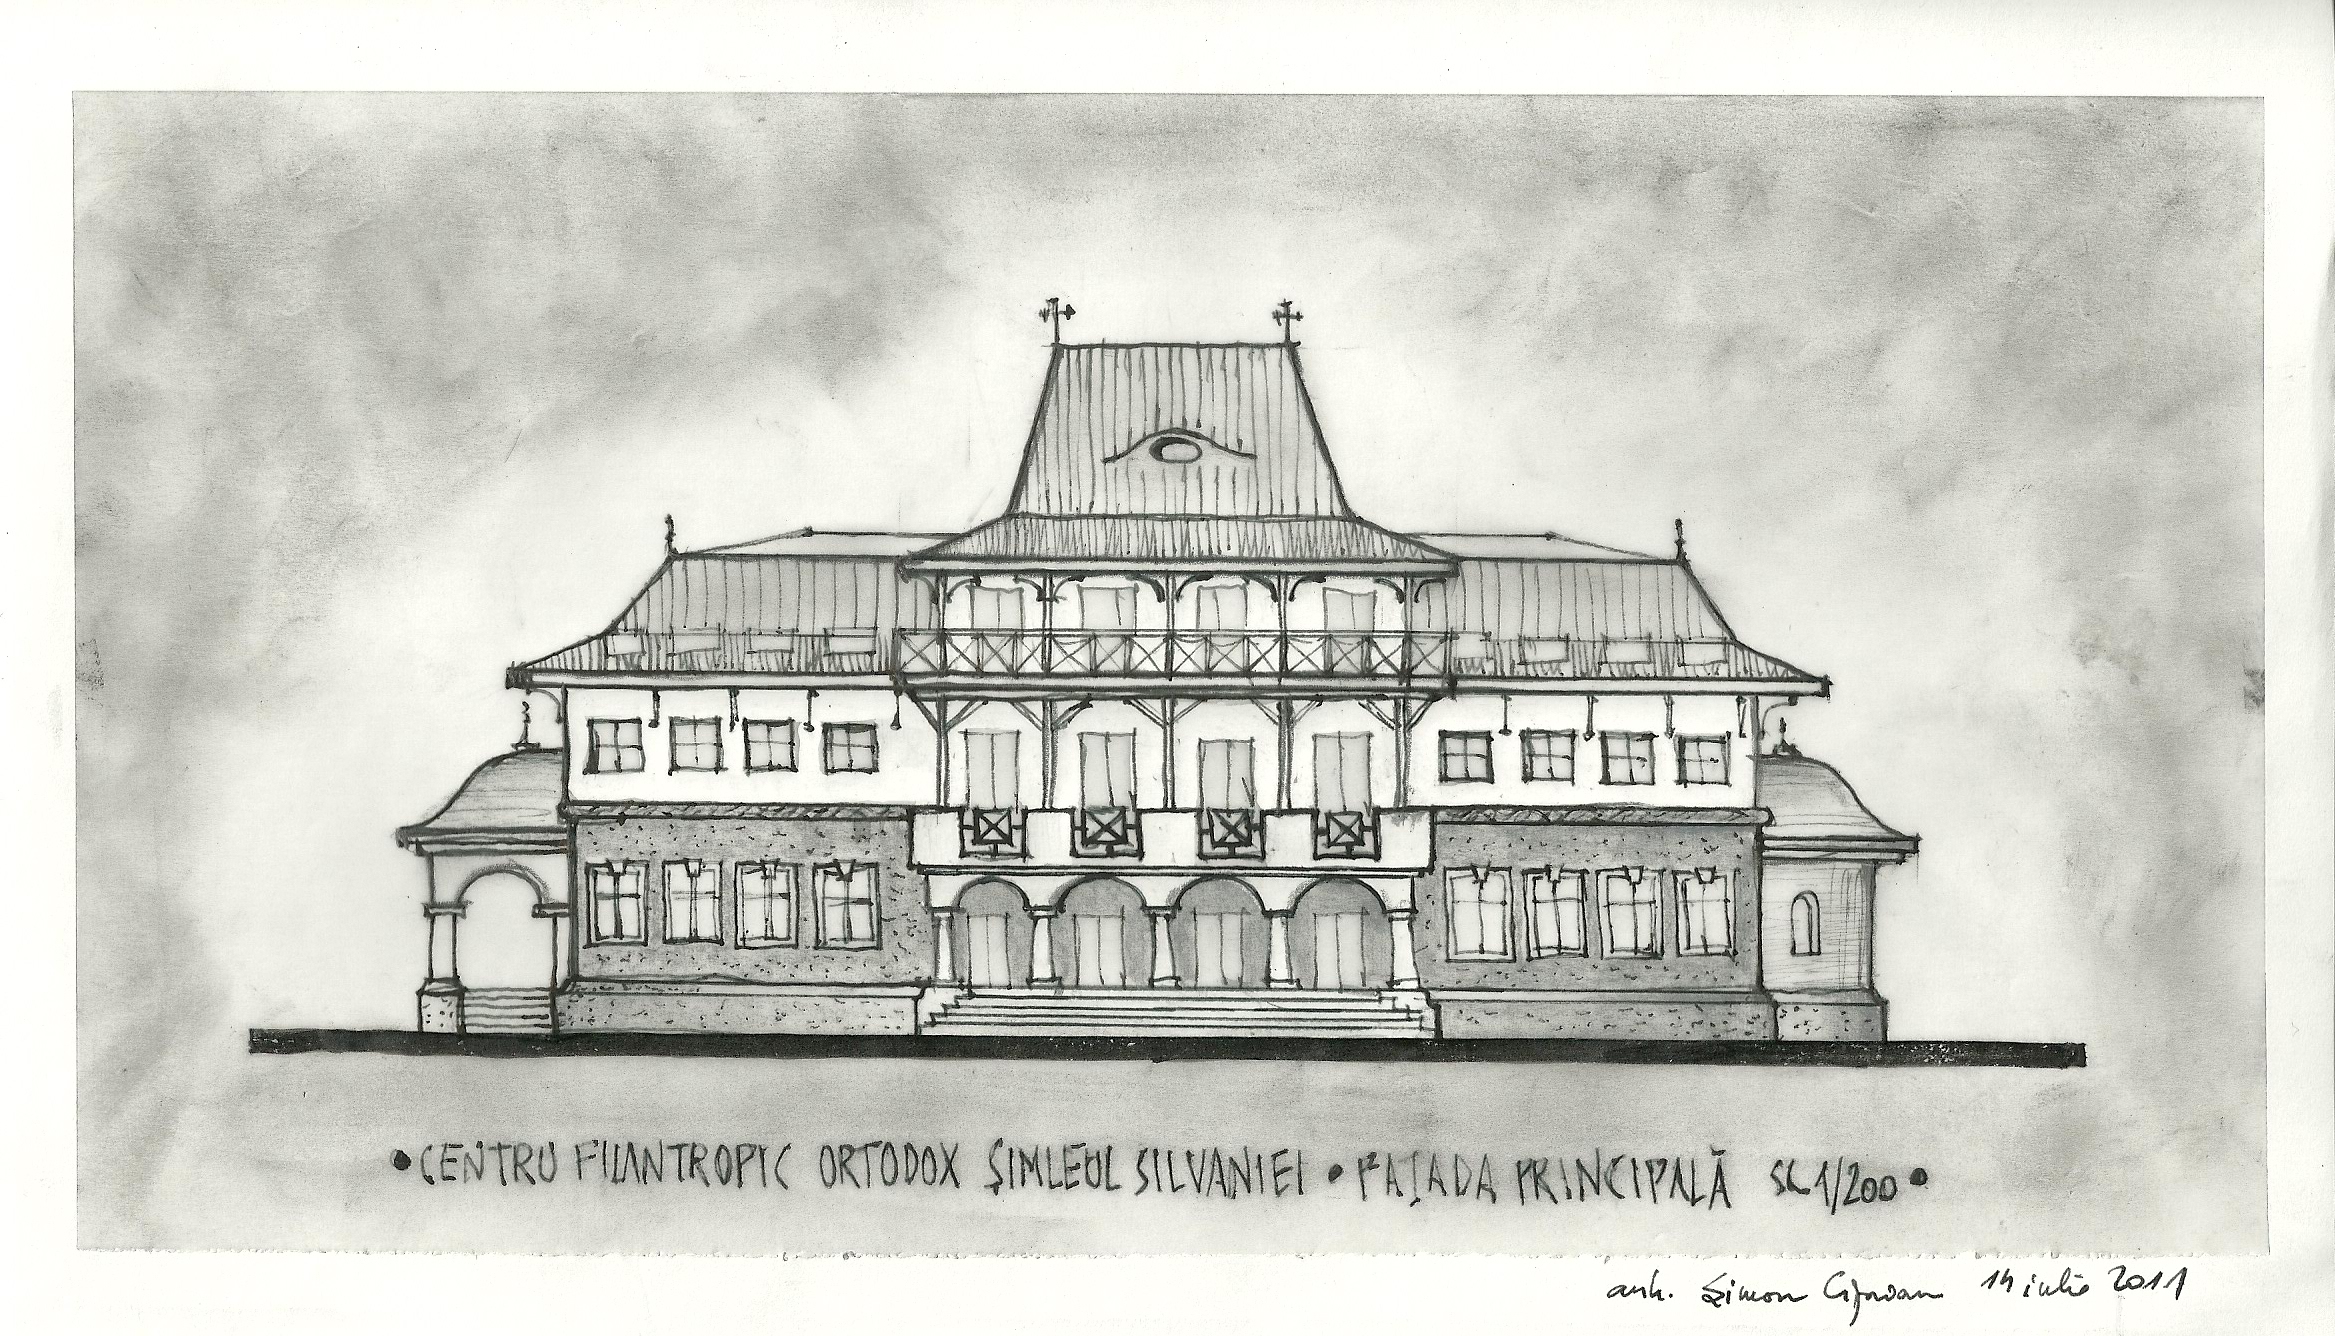 • CENTRU FILANTROPIC ORTODOX ŞIMLEUL SILVANIEI • FAŢADA PRINCIPALĂ SC 1/200 •
arh. Simon Ciprian 14 iulie 2011